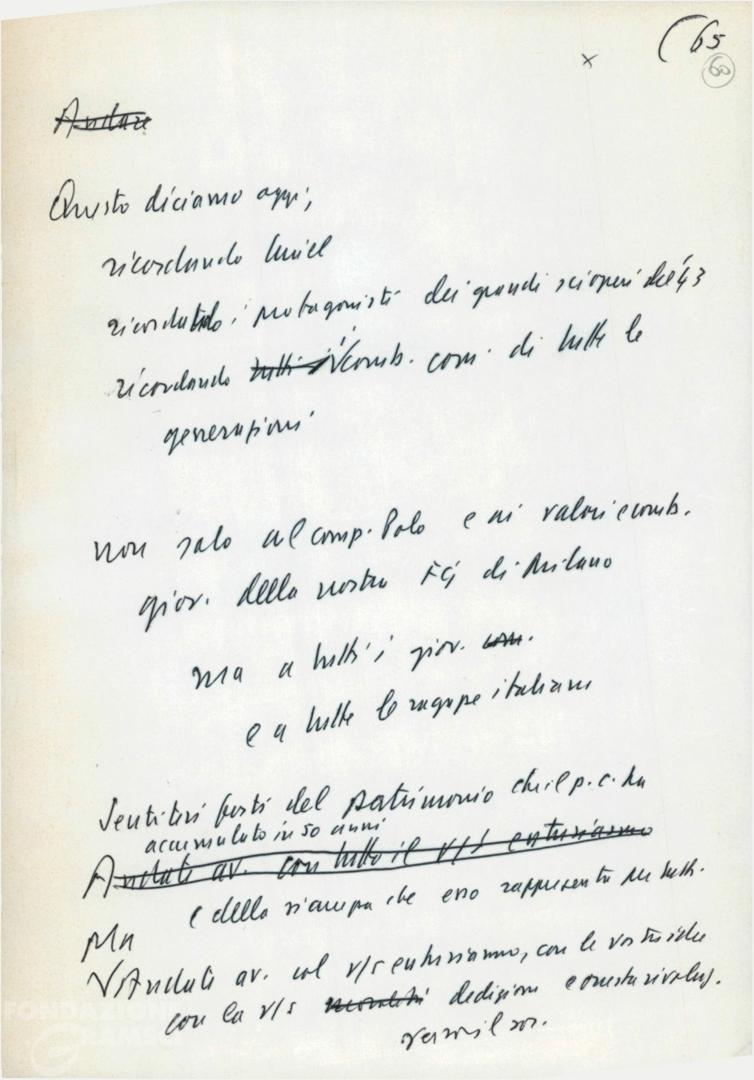 (65
60
x
Andare
Questo diciamo oggi,
ricordando Curiel
ricordando i protagonisti dei grandi scioperi del '43
ricordando tutti i comb. com. di tutte le
generazioni
non solo al comp. Polo e ai valori comb.
giov. della nostra FGCI di Milano
ma a tutti i giov. com.
e a tutte le ragazze italiane
Sentitevi forti del patrimonio che il p.c. ha
accumulato in 50 anni
Andate av. con tutto il v/s entusiasmo
e della stampa che esso rappresenta per tutti.
Ma
Andate av. col v/s entusiasmo, con le vostre idee
con la v/s dedizione onesta rivoluz.
verso il soc.
FONDAZIONE
GRAMSCI